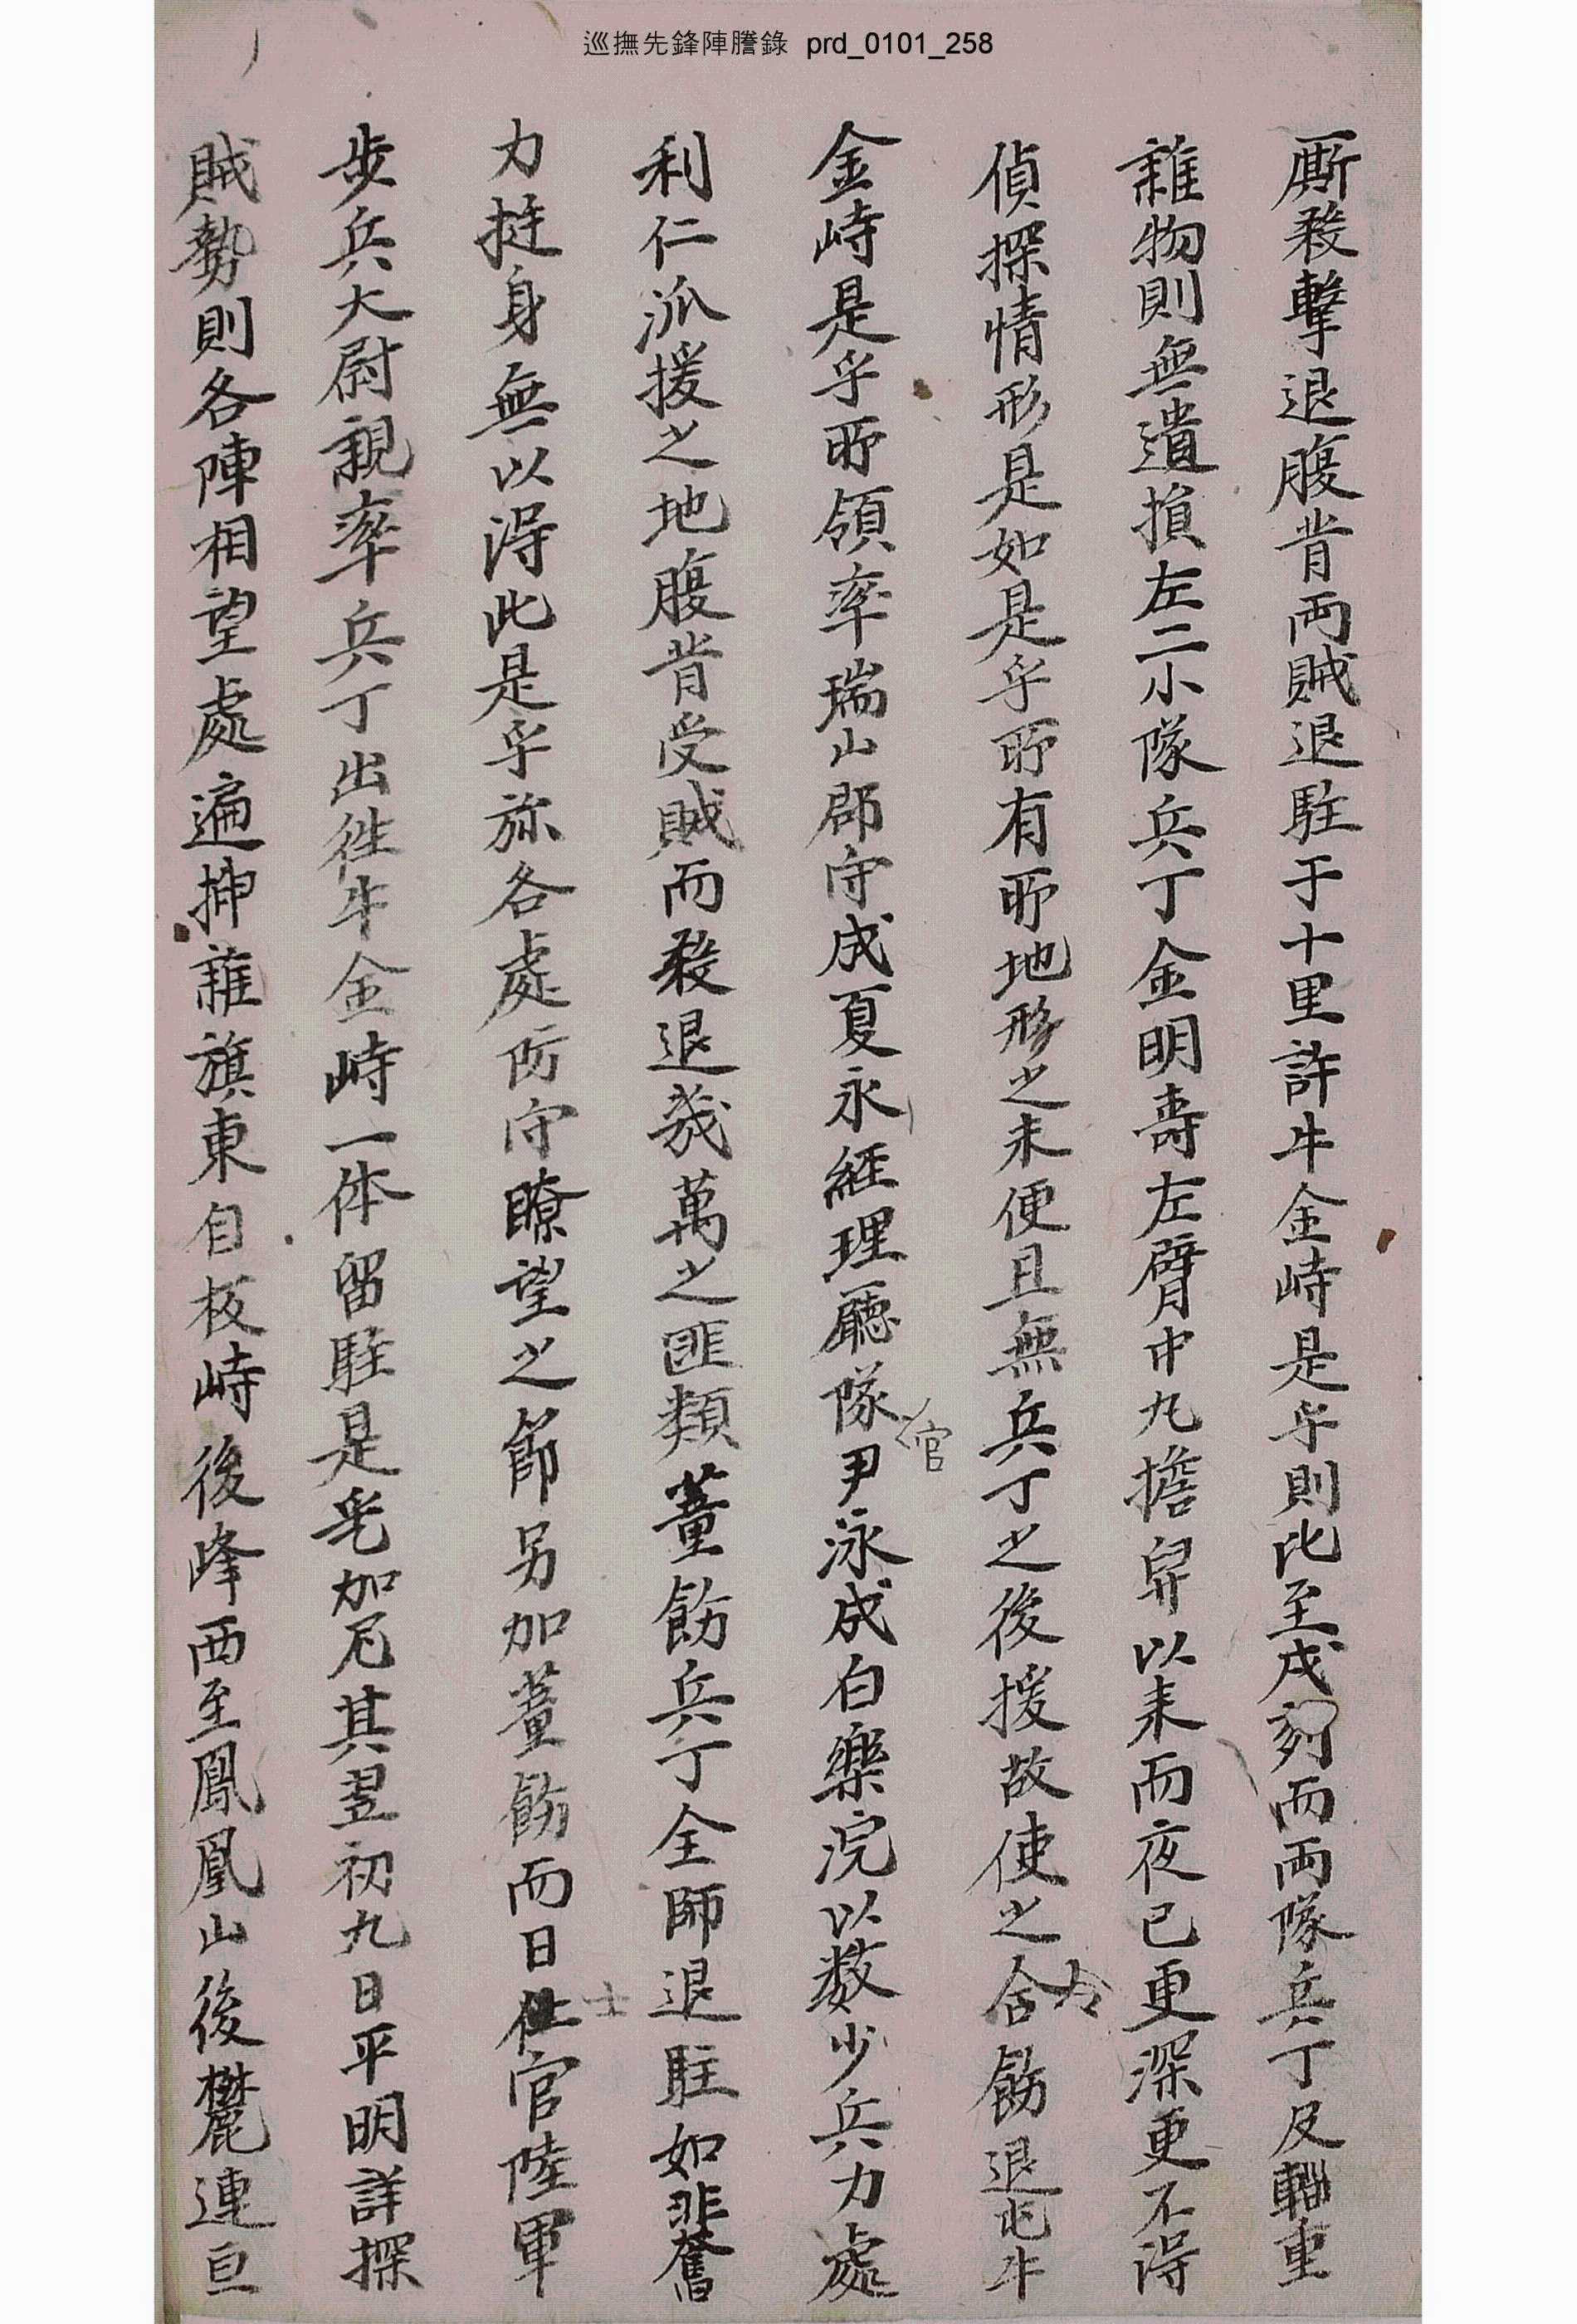 巡撫先鋒陣謄錄 prd_0101_258
厮殺擊退腹背両賊退駐于十里許牛金峙是乎則比至戌刻而両隊兵丁及輜重
雜物則無遺損左二小隊兵丁金明壽左臂中丸擔舁以来而夜已更深更不淂
偵探情形是如是乎所有所地形之未便且無兵丁之後援故使之合飭退屯牛
金峙是乎所領率瑞山郡守成夏永経理廳隊官尹泳成白樂浣以数少兵力處
利仁派援之地腹背受賊而殺退幾萬之匪類董飭兵丁全師退駐如非奮
力挺身無以淂此是乎旀各處防守瞭望之節另加董飭而日仕官陸軍
步兵大尉親率兵丁出徃牛金峙一体留駐是乎加尼其翌初九日平明詳探
賊勢則各陣相望處遍揷雜旗東自板峙後峰西至鳳凰山後麓連亘